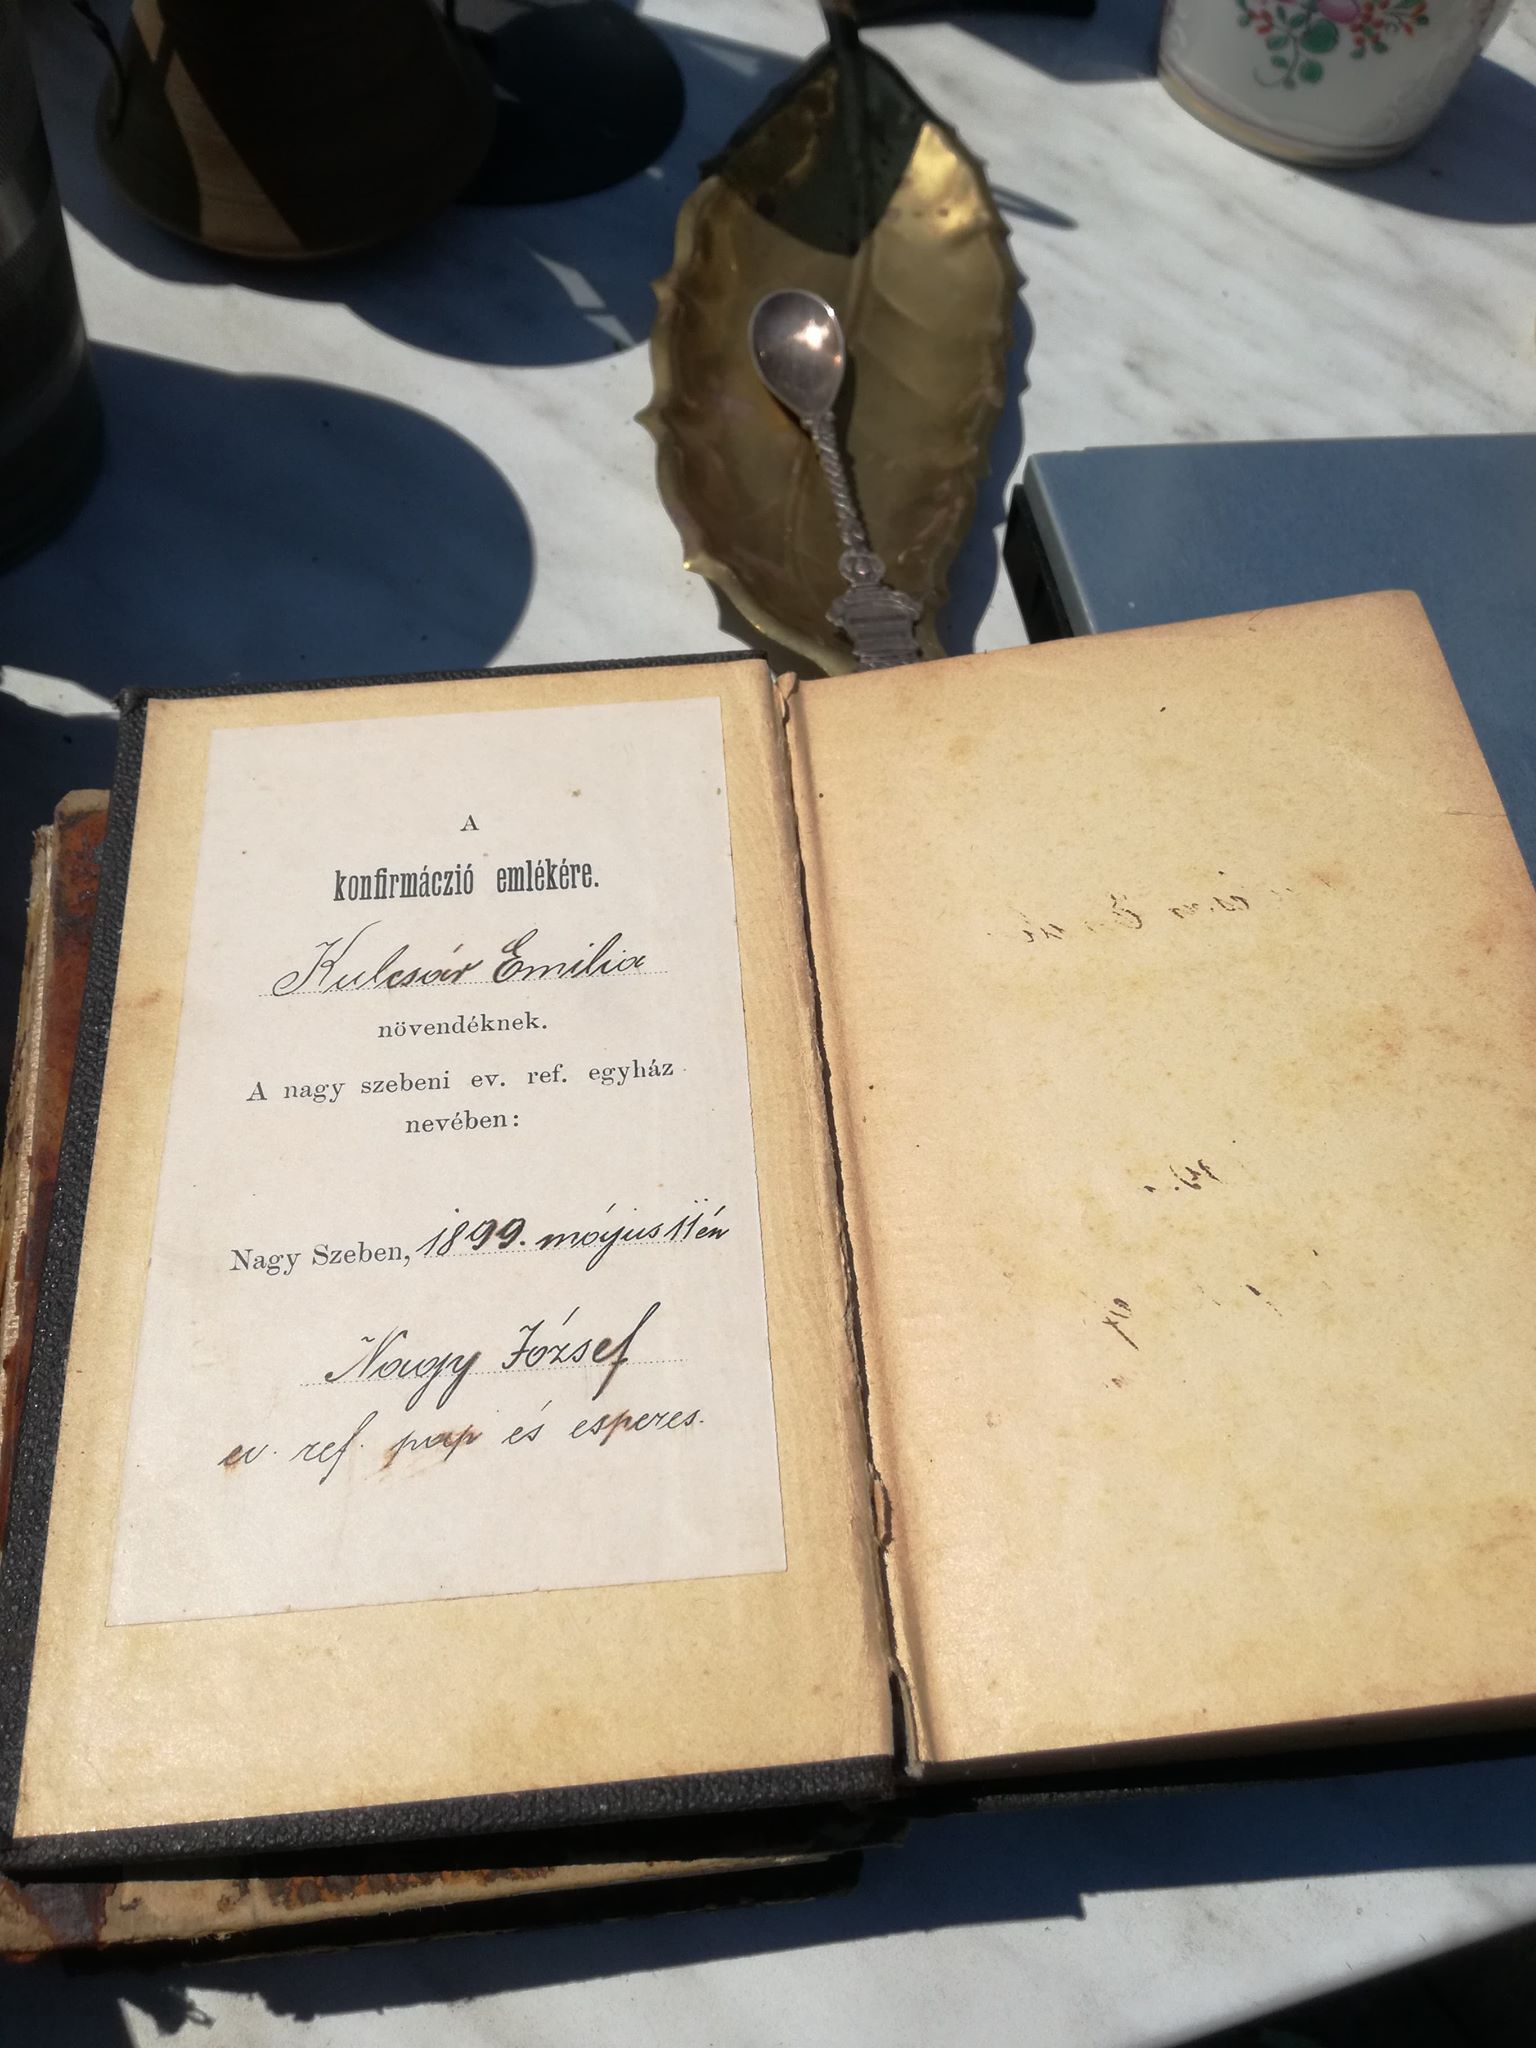 A
konfirmáczió emlékére.
Kulcsár Emilia
növendéknek.
A nagy szebeni ev. ref. egyház
nevében:
Nagy Szeben, 1899. május 11én
Nagy József
ev. ref. pap és esperes.